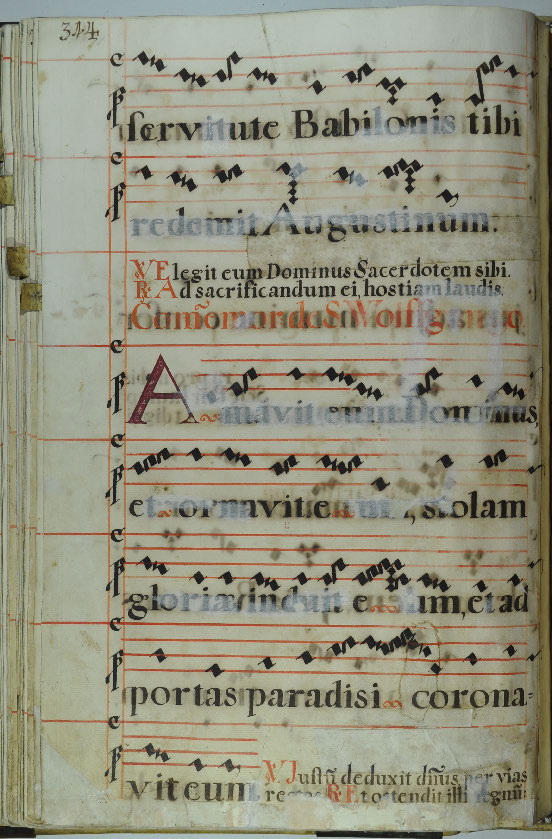 314
servitute Babilonis tibi
redemit Augustinum.
VE legit eum Dominus Sacerdotem sibi.
R Ad sacrificandum ei, hostiam laudis.
S Wolfgangi
Amavit eum Dominus,
et ornavit eum, stolam
gloriæ induit eum, et ad
portas paradisi corona-
vit eum
V Justũ deduxit dñus per vias
rectas R Et ostendit illi regnũ: